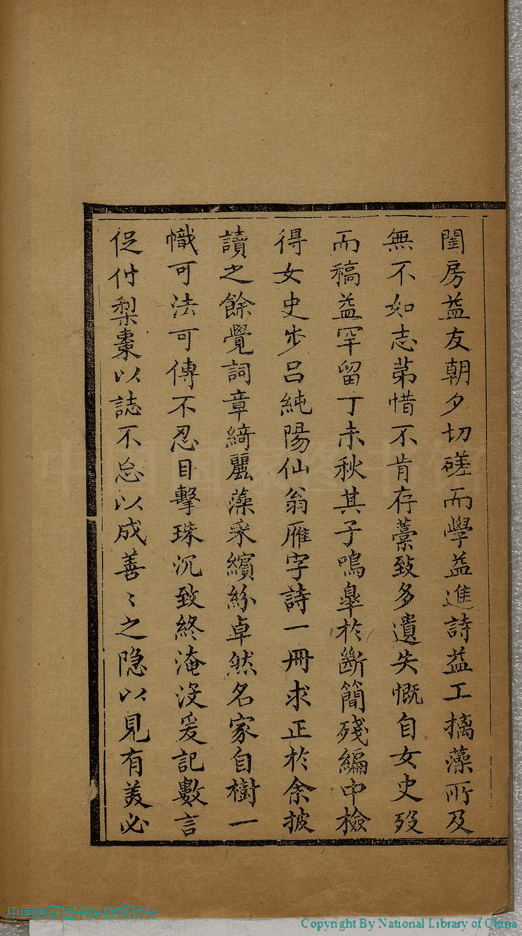 閨房益友朝夕切磋而學益進詩益工摛藻所及
無不如志苐惜不肯存藳致多遺失慨自女史歿
而稿益罕留丁未秋其子鳴臯於斷簡殘編中檢
得女史步呂純陽仙翁雁字詩一冊求正於余披
讀之餘覺詞章綺麗藻采繽紛卓然名家自樹一
幟可法可傳不忍目擊珠沉致終淹沒爰記數言
促付梨棗以誌不忘以成善〻之隐以見有美必
Copyright By National Library of China